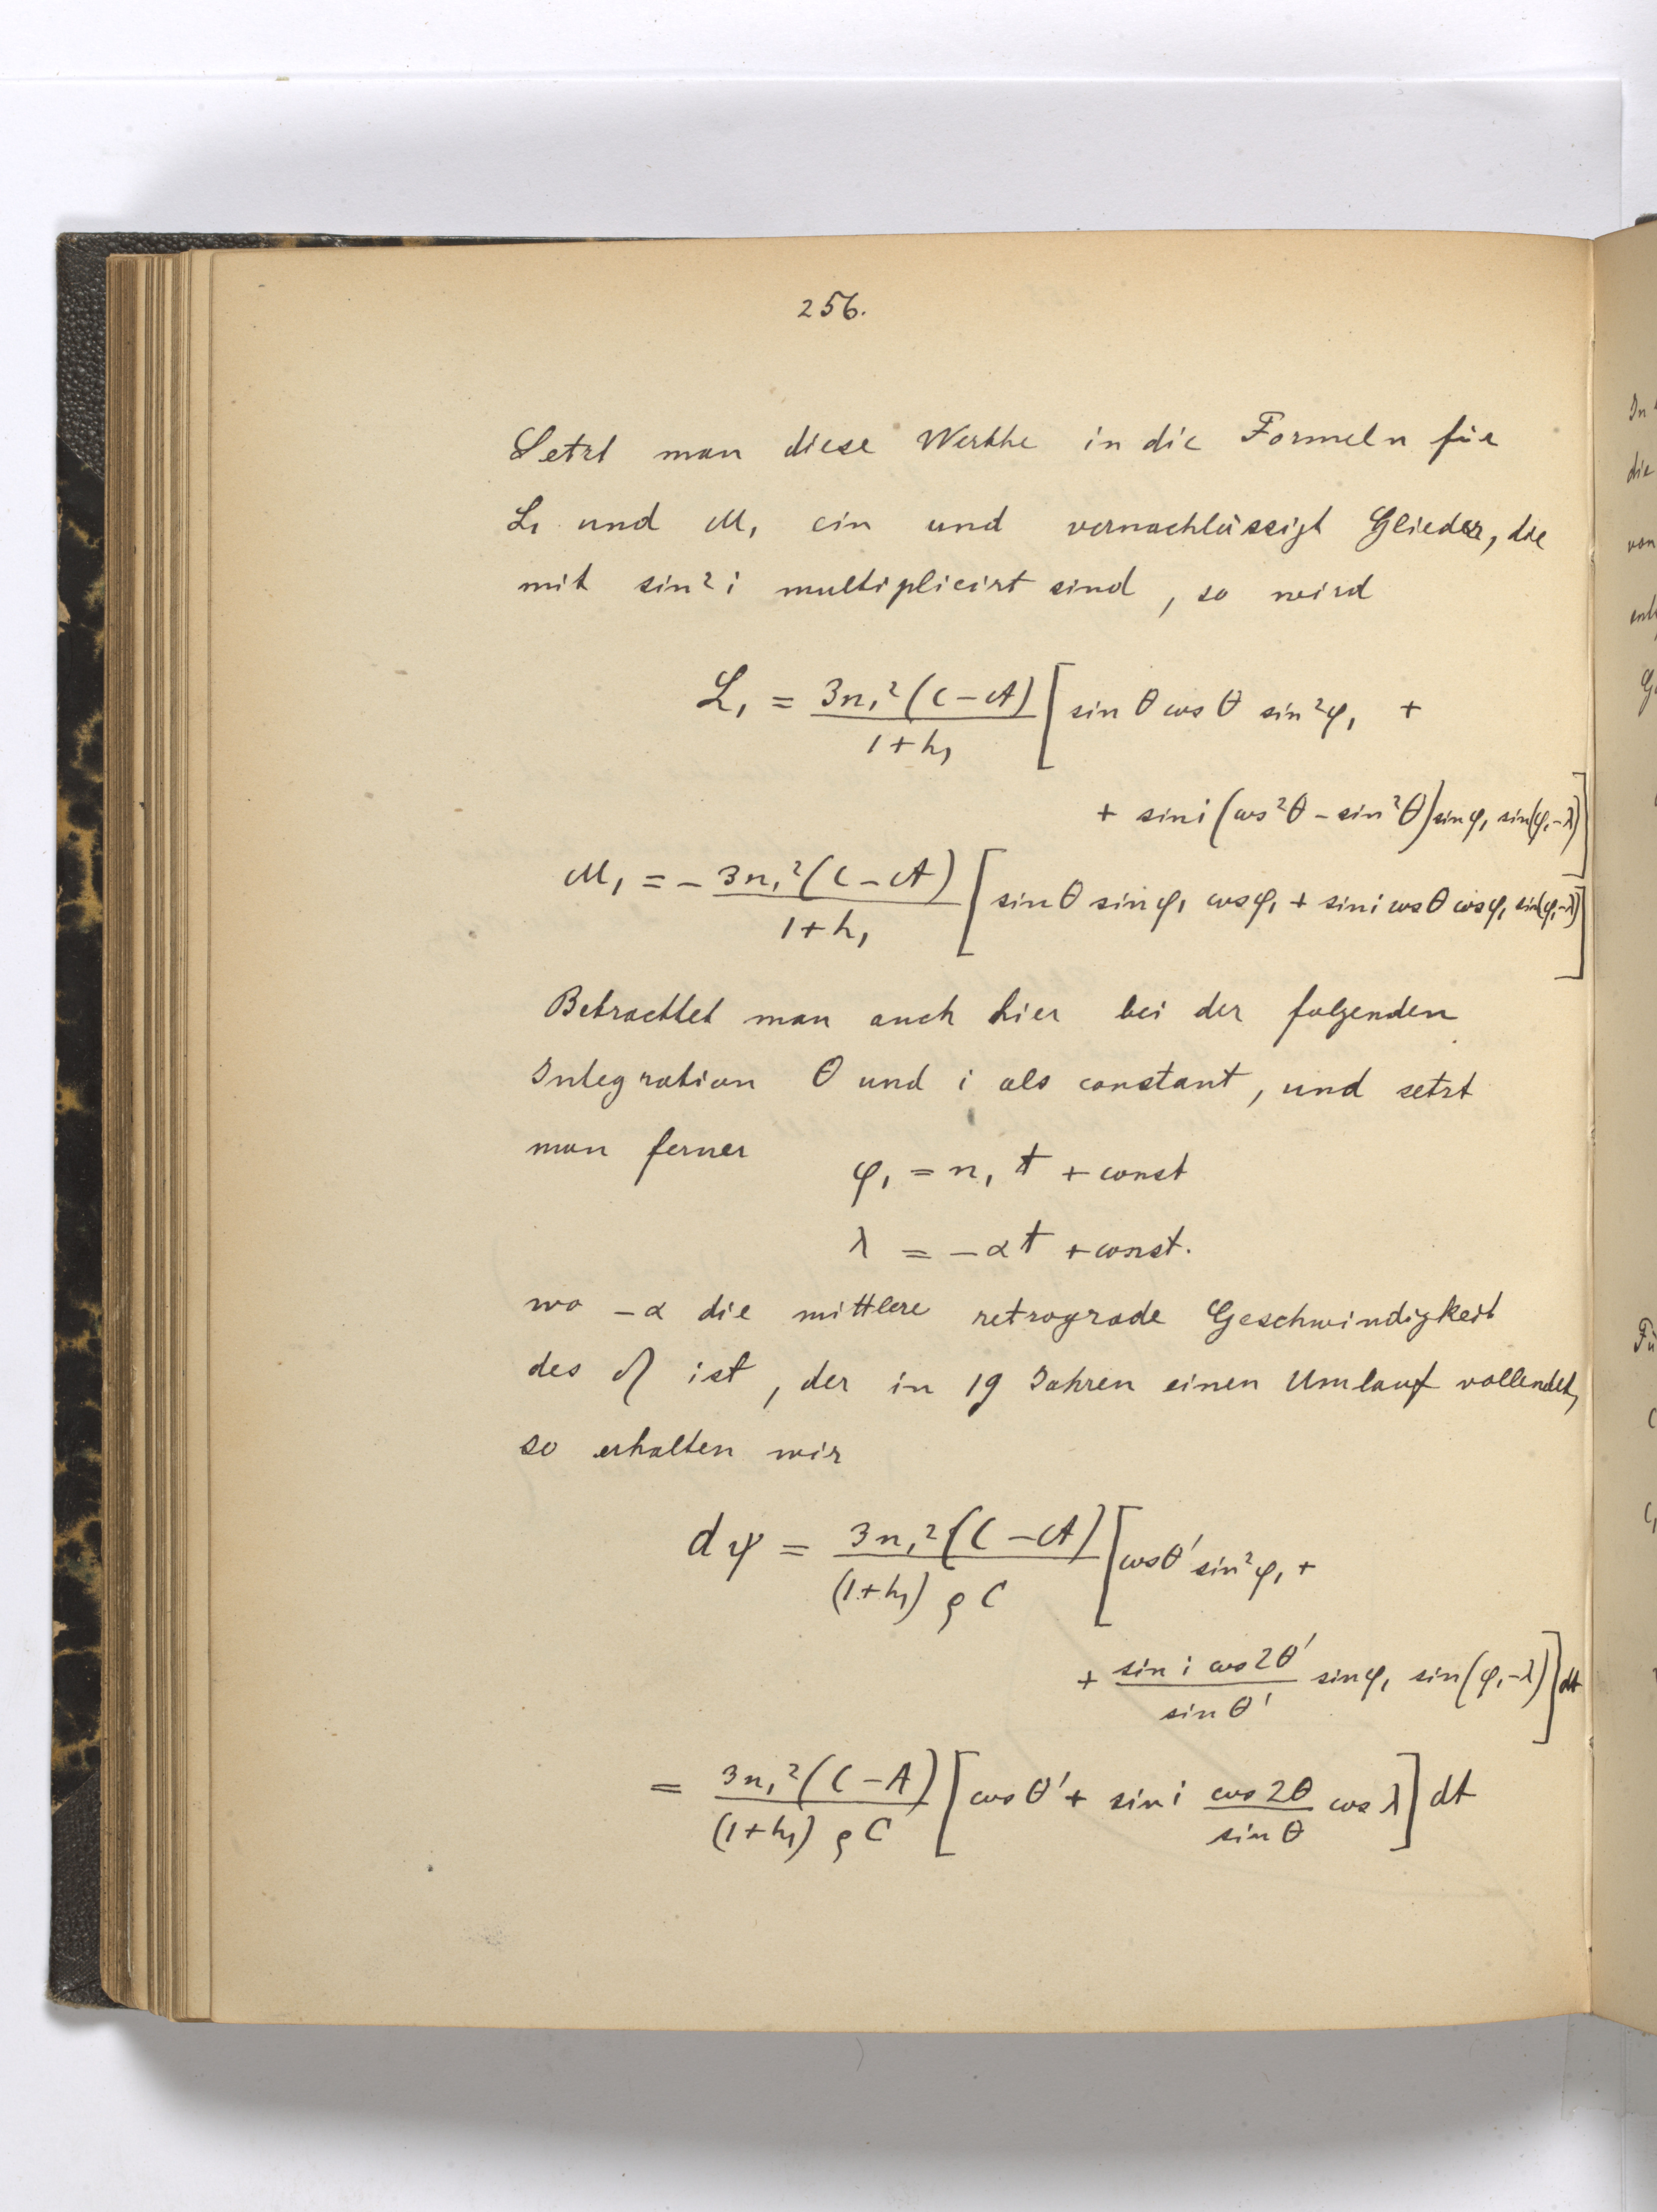 256.
Setzt man diese Werthe in die Formeln für
L₁ und M₁ ein und vernachlässigt Glieder, die
mit sin² i multiplicirt sind, so wird
L₁ = 3n₁²(C–A)/(1+h₁) [sin θ cos θ sin²φ₁ +
+ sin i (cos²θ – sin²θ) sin φ₁ sin(φ₁–λ)]
M₁ = – 3n₁²(C–A)/(1+h₁) [sin θ sin φ₁ cos φ₁ + sin i cos θ cos φ₁ sin(φ₁–λ)]
Betrachtet man auch hier bei der folgenden
Integration θ und i als constant, und setzt
man ferner
φ₁ = n₁ t + const
λ = – αt + const.
wo – α die mittlere retrograde Geschwindigkeit
des ☊ ist, der in 19 Jahren einen Umlauf vollendet,
so erhalten wir
dψ = 3n₁²(C–A)/((1+h₁) ρ C) [cos θ' sin²φ₁ +
+ (sin i cos 2θ')/(sin θ') sin φ₁ sin(φ₁–λ)] dt
= 3n₁²(C–A)/((1+h₁) ρ C) [cos θ' + sin i (cos 2θ)/(sin θ) cos λ] dt